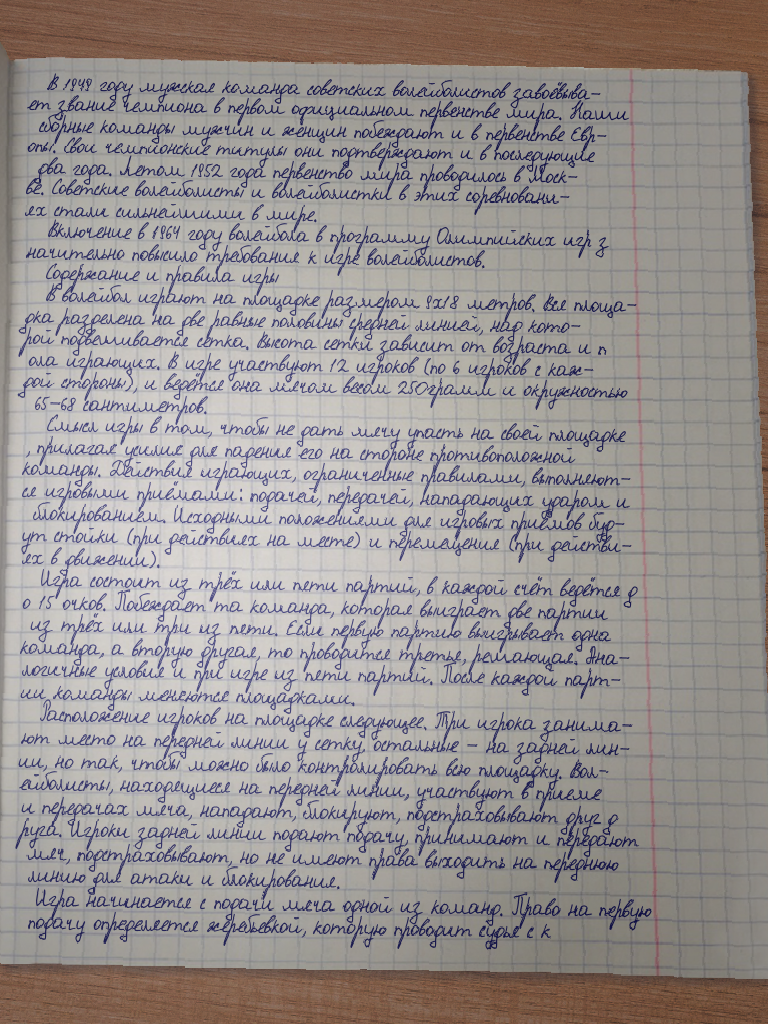 В 1949 году мужская команда советских волейболистов завоёвыва-
ет звание чемпиона в первом официальном первенстве мира. Наши
сборные команды мужчин и женщин побеждают и в первенстве Евр-
опы. Свои чемпионские титулы они подтверждают и в последующие
два года. Летом 1952 года первенство мира проводилось в Моск-
ве. Советские волейболисты и волейболистки в этих соревновани-
ях стали сильнейшими в мире.
Включение в 1964 году волейбола в программу Олимпийских игр з
начительно повысило требования к игре волейболистов.
Содержание и правила игры
В волейбол играют на площадке размером 9х18 метров. Вся площа-
дка разделена на две равные половины средней линией, над кото-
рой подвешивается сетка. Высота сетки зависит от возраста и п
ола играющих. В игре участвуют 12 игроков (по 6 игроков с каж-
дой стороны), и ведётся она мячом весом 250грамм и окружностью
65-68 сантиметров.
Смысл игры в том, чтобы не дать мячу упасть на своей площадке
, прилагая усилия для падения его на стороне противоположной
команды. Действия играющих, ограниченные правилами, выполняют-
ся игровыми приёмами: подачей, передачей, нападающих ударом и
блокированием. Исходными положениями для игровых приёмов буд-
ут стойки (при действиях на месте) и перемещения (при действи-
ях в движении).
Игра состоит из трёх или пяти партий, в каждой счёт ведётся д
о 15 очков. Побеждает та команда, которая выиграет две партии
из трёх или три из пяти. Если первую партию выигрывает одна
команда, а вторую другая, то проводится третья, решающая. Ана-
логичные условия и при игре из пяти партий. После каждой парт-
ии команды меняются площадками.
Расположение игроков на площадке следующее. Три игрока занима-
ют место на передней линии у сетку, остальные - на задней лин-
ии, но так, чтобы можно было контролировать всю площадку. Вол-
ейболисты, находящиеся на передней линии, участвуют в приеме
и передачах мяча, нападают, блокируют, подстраховывают друг д
руга. Игроки задней линии подают подачу, принимают и передают
мяч, подстраховывают, но не имеют права выходить на переднюю
линию для атаки и блокирования.
Игра начинается с подачи мяча одной из команд. Право на первую
подачу определяется жеребьевкой, которую проводит судья с к